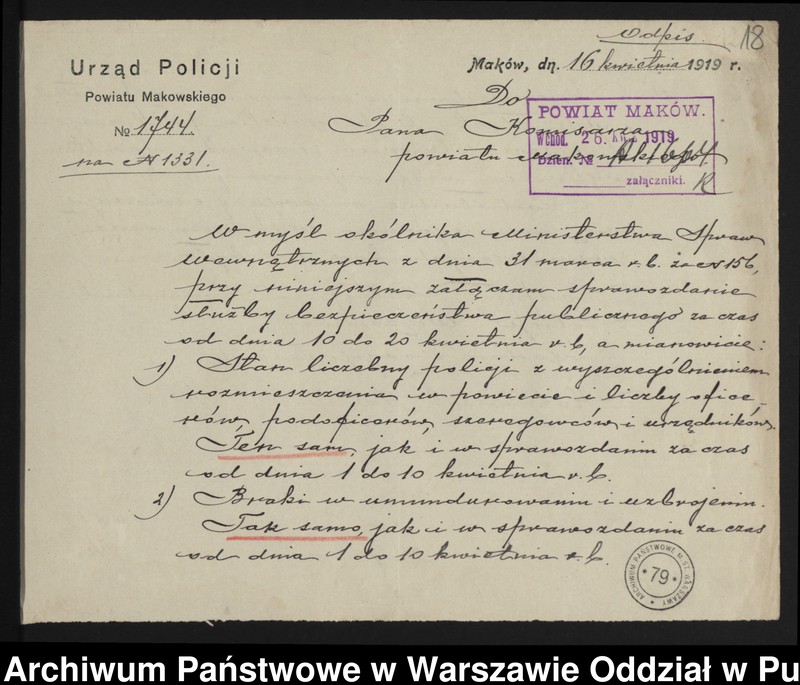 Odpis. 18
Urząd Policji
Powiatu Makowskiego
№ 1744.
na № 1331.
Maków, dn. 16 kwietnia 1919 r.
Do
Pana Komisarza
powiatu Makowskiego
POWIAT MAKÓW.
Wchod. 26. 1919
Dzien. №
załączniki.
W myśl okólnika Ministerstwa Spraw
Wewnętrznych z dnia 31 marca r.b. za № 156,
przy niniejszym załączam sprawozdanie
służby bezpieczeństwa publicznego za czas
od dnia 10 do 20 kwietnia r.b, a mianowicie:
1) Stan liczebny policji z wyszczególnieniem
rozmieszczania w powiecie i liczby ofice-
rów, podoficerów, szeregowców i urzędników.
Ten sam, jak i w sprawozdaniu za czas
od dnia 1 do 10 kwietnia r.b.
2) Braki w umundurowaniu i uzbrojeniu.
Tak samo, jak i w sprawozdaniu za czas
od dnia 1 do 10 kwietnia r.b.
ARCHIWUM PAŃSTWOWE M. ST. WARSZAWY
79
Archiwum Państwowe w Warszawie Oddział w Pu